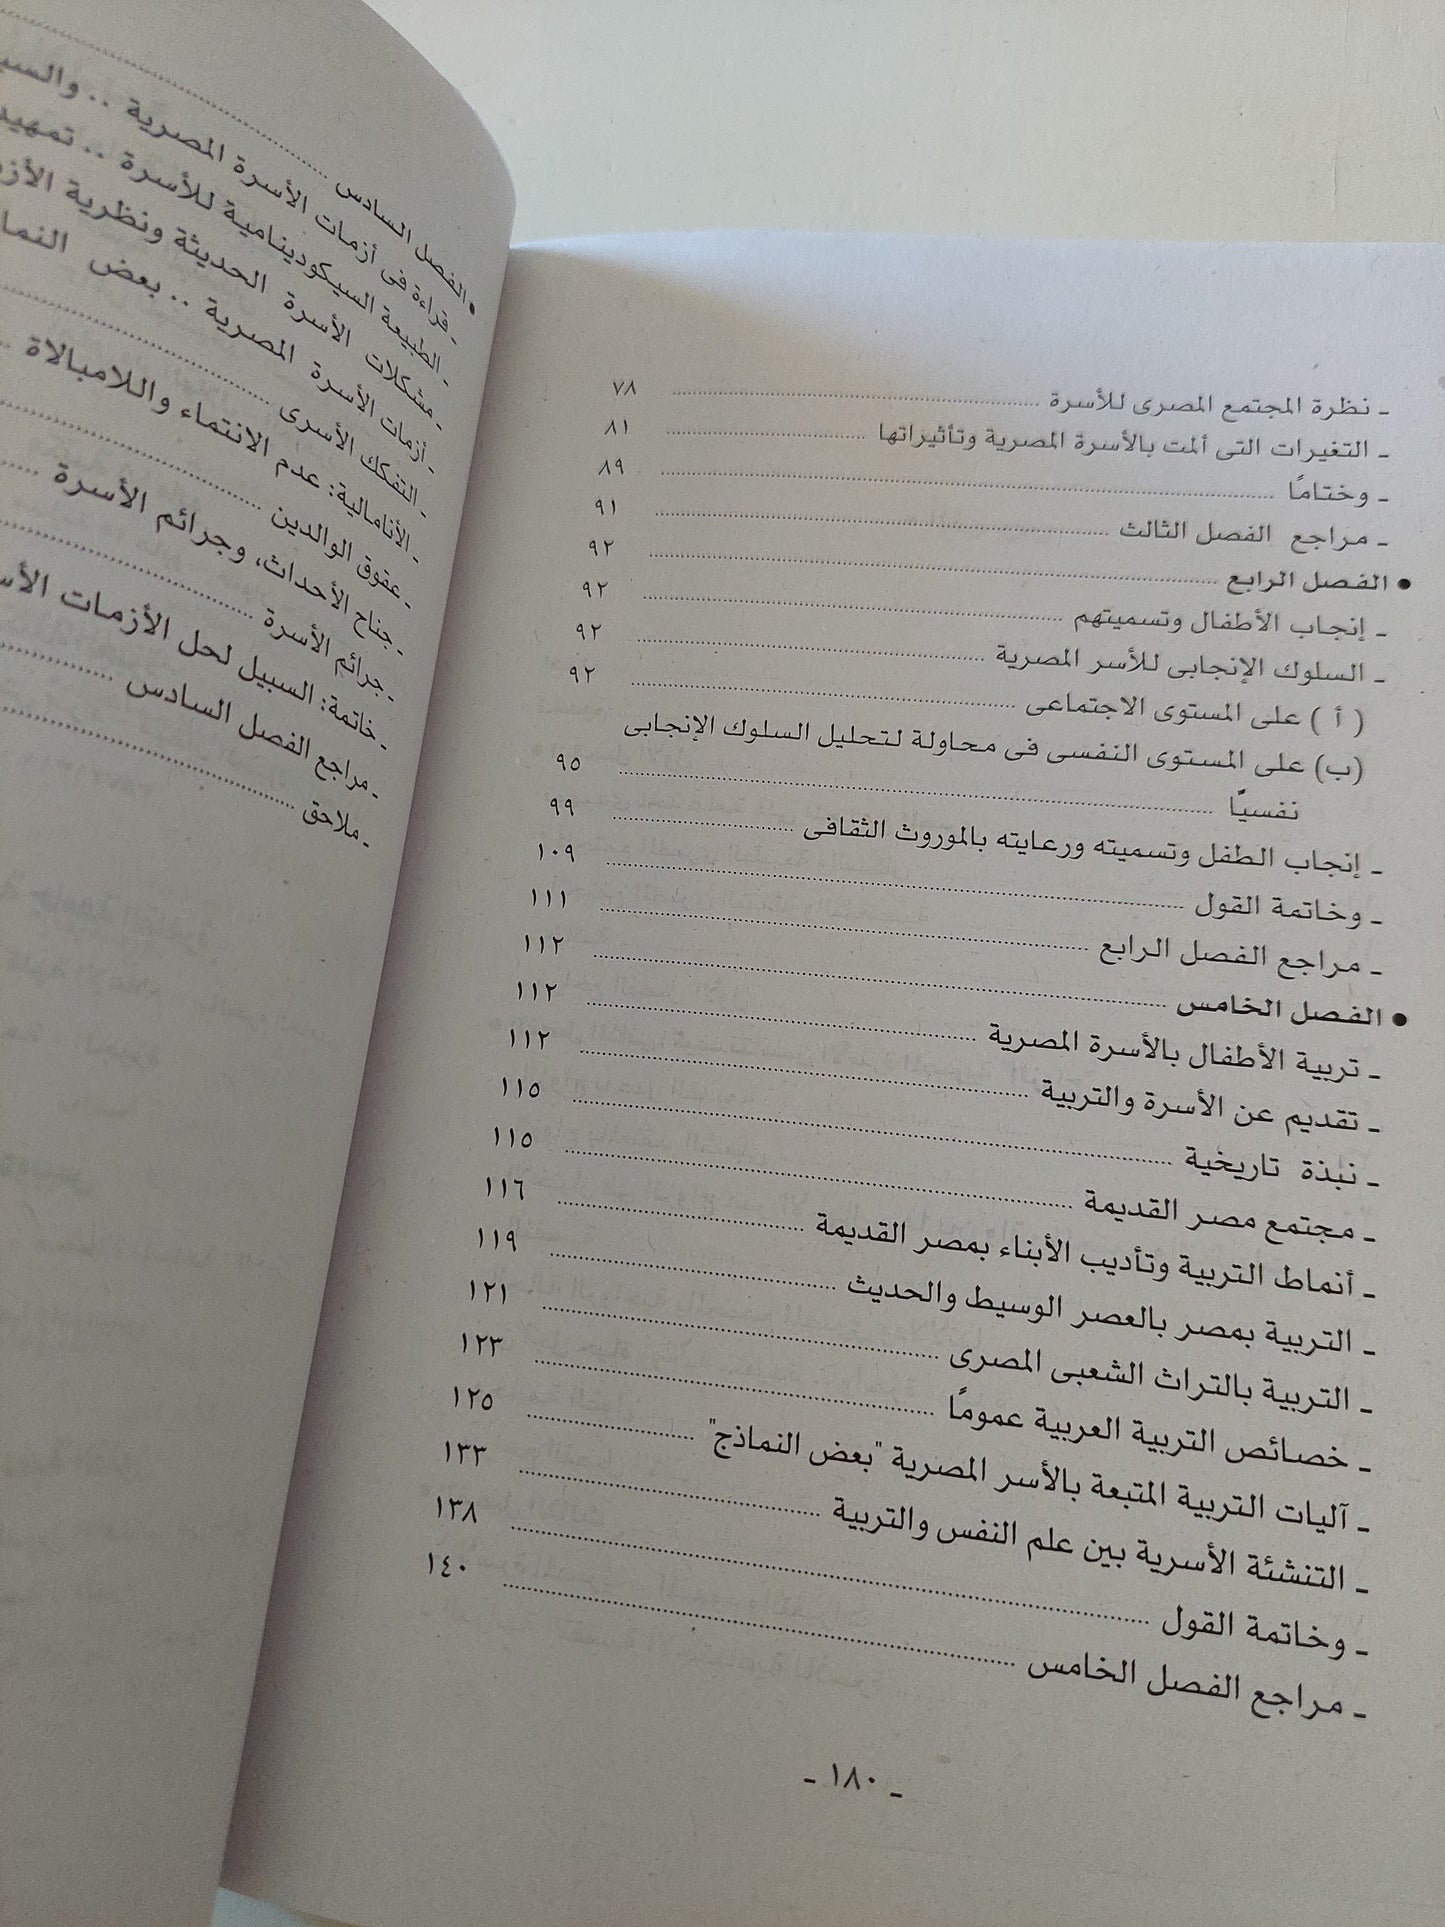 - نظرة المجتمع المصرى للأسرة ........ ٧٨
- التغيرات التى ألمت بالأسرة المصرية وتأثيراتها ........ ٨١
- وختامًا ........ ٨٩
- مراجع الفصل الثالث ........ ٩١
• الفصل الرابع ........ ٩٢
- إنجاب الأطفال وتسميتهم ........ ٩٢
- السلوك الإنجابى للأسر المصرية ........ ٩٢
( أ ) على المستوى الاجتماعى ........ ٩٢
(ب) على المستوى النفسى فى محاولة لتحليل السلوك الإنجابى
نفسيًا ........ ٩٥
- إنجاب الطفل وتسميته ورعايته بالموروث الثقافى ........ ٩٩
- وخاتمة القول ........ ١٠٩
- مراجع الفصل الرابع ........ ١١١
• الفصل الخامس ........ ١١٢
- تربية الأطفال بالأسرة المصرية ........ ١١٢
- تقديم عن الأسرة والتربية ........ ١١٢
- نبذة تاريخية ........ ١١٥
- مجتمع مصر القديمة ........ ١١٥
- أنماط التربية وتأديب الأبناء بمصر القديمة ........ ١١٦
- التربية بمصر بالعصر الوسيط والحديث ........ ١١٩
- التربية بالتراث الشعبى المصرى ........ ١٢١
- خصائص التربية العربية عمومًا ........ ١٢٣
- آليات التربية المتبعة بالأسر المصرية "بعض النماذج" ........ ١٢٥
- التنشئة الأسرية بين علم النفس والتربية ........ ١٣٣
- وخاتمة القول ........ ١٣٨
- مراجع الفصل الخامس ........ ١٤٠
- ١٨٠ -
• الفصل السادس ........
- قراءة فى أزمات الأسرة المصرية ..
- الطبيعة السيكودينامية للأسرة .. تمهيد
- مشكلات الأسرة الحديثة ونظرية
- أزمات الأسرة المصرية .. بعض
- التفكك الأسرى ........
- الأنامالية: عدم الانتماء واللامبالاة ..
- عقوق الوالدين ........
- جناح الأحداث، وجرائم الأسرة ........
- جرائم الأسرة ........
- خاتمة: السبيل لحل الأزمات
- مراجع الفصل السادس ........
- ملاحق ........